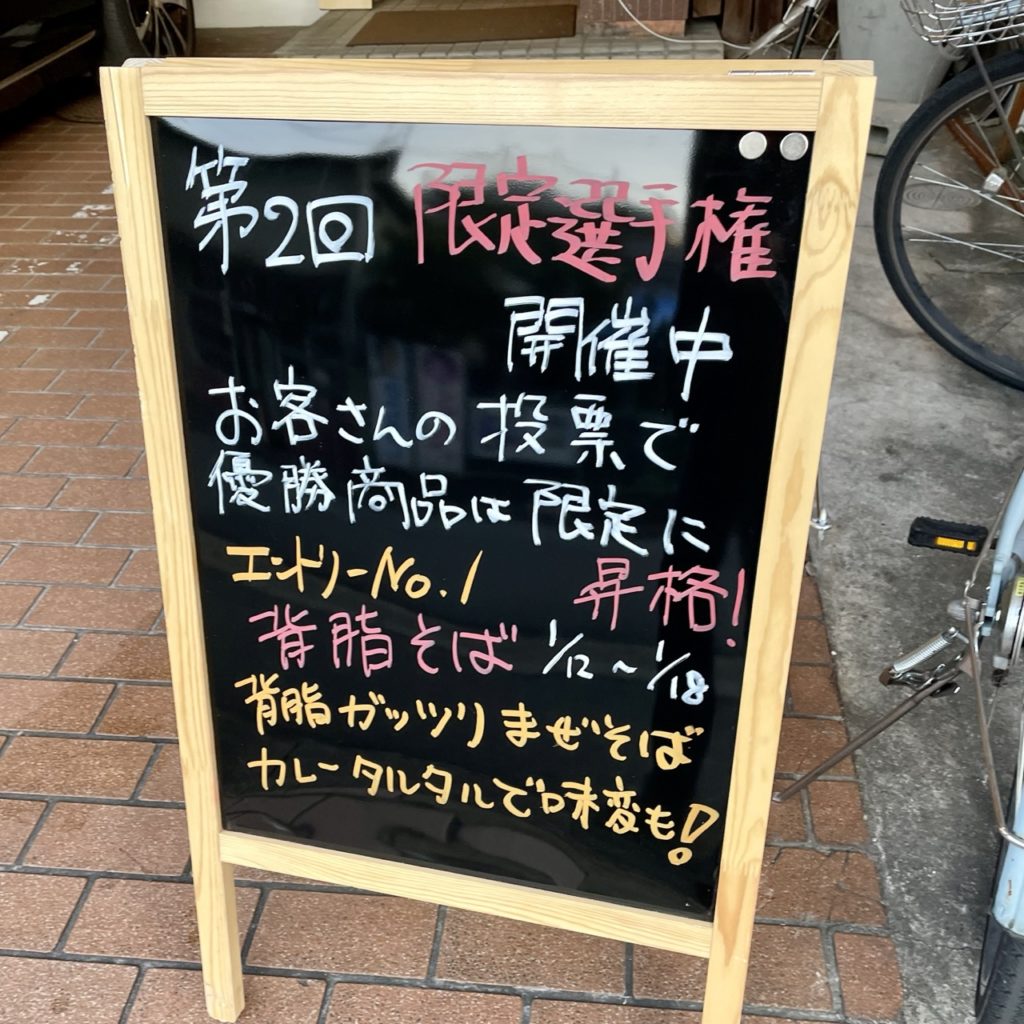 第2回 限定選手権
開催中
お客さんの投票で
優勝商品は限定に
昇格!
エントリーNo.1
背脂そば 1/12〜1/18
背脂ガッツリまぜそば
カレータルタルで味変も!